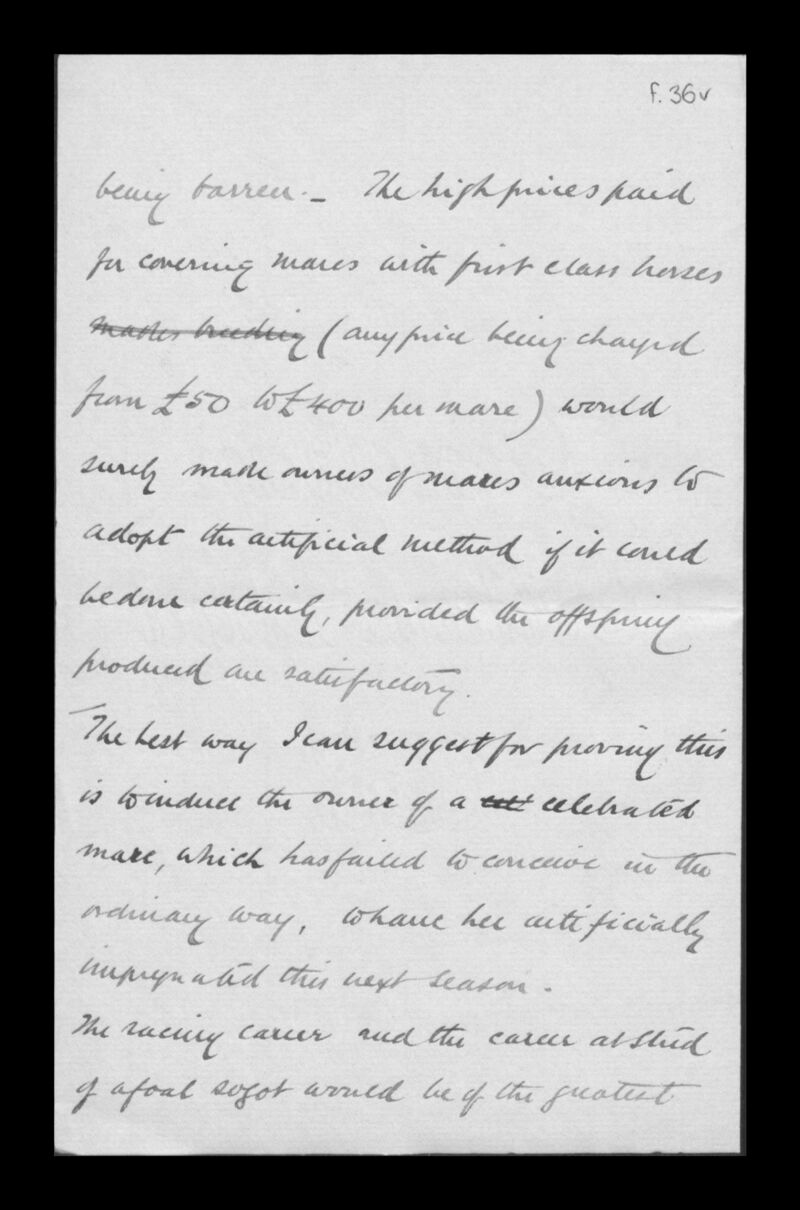 f. 36v
being barren. – The high prices paid
for covering mares with first class horses
makes breeding (any price being charged
from £50 to £400 per mare) would
surely make owners of mares anxious to
adopt the artificial method if it could
be done certainly, provided the offspring
produced are satisfactory.
The best way I can suggest for proving this
is to induce the owner of a celebrated
mare, which has failed to conceive in the
ordinary way, to have her artificially
impregnated this next season.
The racing career and the career at Stud
of a foal so got would be of the greatest